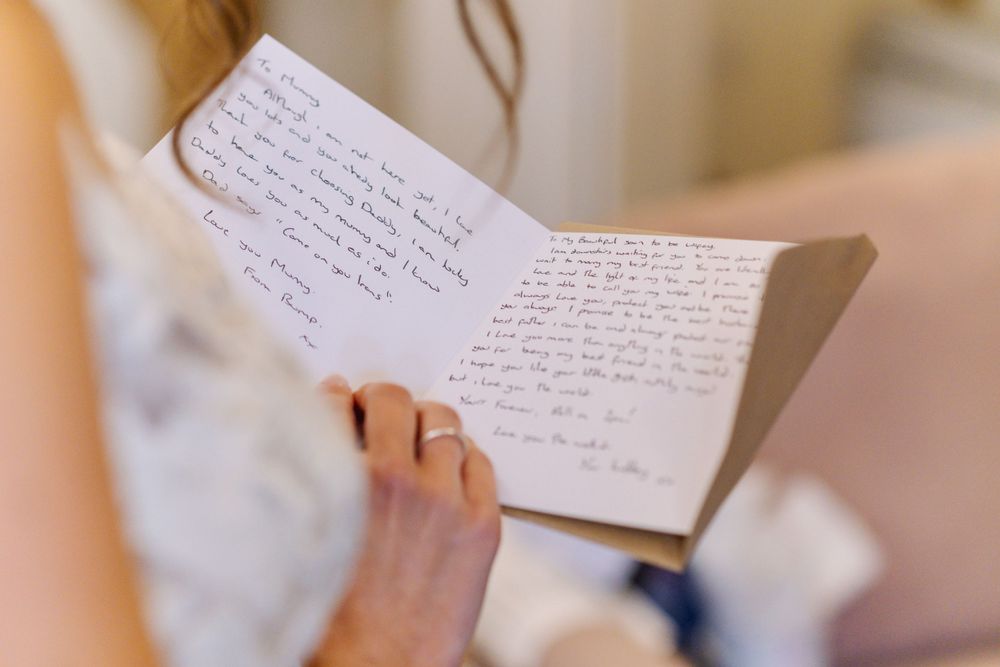 To Mummy
Although i am not here yet, I love
you lots and you already look beautiful.
Thank you for choosing Daddy, I am lucky
to have you as my mummy and I know
Daddy loves you as much as i do.
Dad says "Come on you Irons".
Love you Mummy.
From Rump.
xx
To My Beautiful soon to be wifey,
I am downstairs waiting for you to come down.
wait to marry my best friend. You are literally
love and the light of my life and I am so
to be able to call you my wife. I promise
always love you, protect you
you always. I promise to be the best husband
best father i can be and always protect our
I love you more than anything in the world.
you for being my best friend in the world.
I hope you like your little gift,
but i love you the world.
Yours Forever,
Love you the